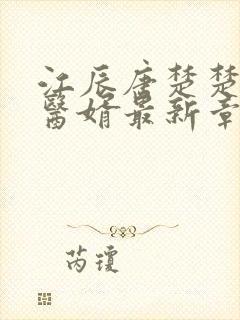 江辰唐楚楚
醫婿最新章
芮瓊